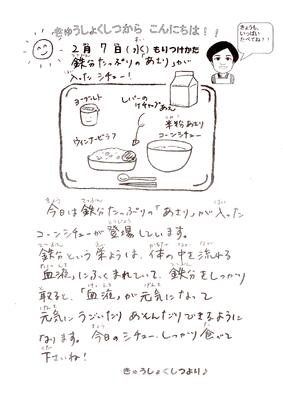 きゅうしょくしつから こんにちは！！
きょうも、
いっぱい
たべてね！！
2月 7日(火) もりつけかた
鉄分たっぷりの「あさり」が
入ったシチュー！
ヨーグルト
レバーの
ケチャップあえ
米粉あさり
コーンシチュー
ウィンナーピラフ
今日は鉄分たっぷりの「あさり」が入った
コーンシチューが登場しています。
鉄分という栄ようは、体の中を流れる
「血液」にふくまれていて、鉄分をしっかり
取ると、「血液」が元気になって
元気にうごいたりあそんだりできるように
なります。今日のシチュー、しっかり食べて
下さいね！
きゅうしょくしつより♪